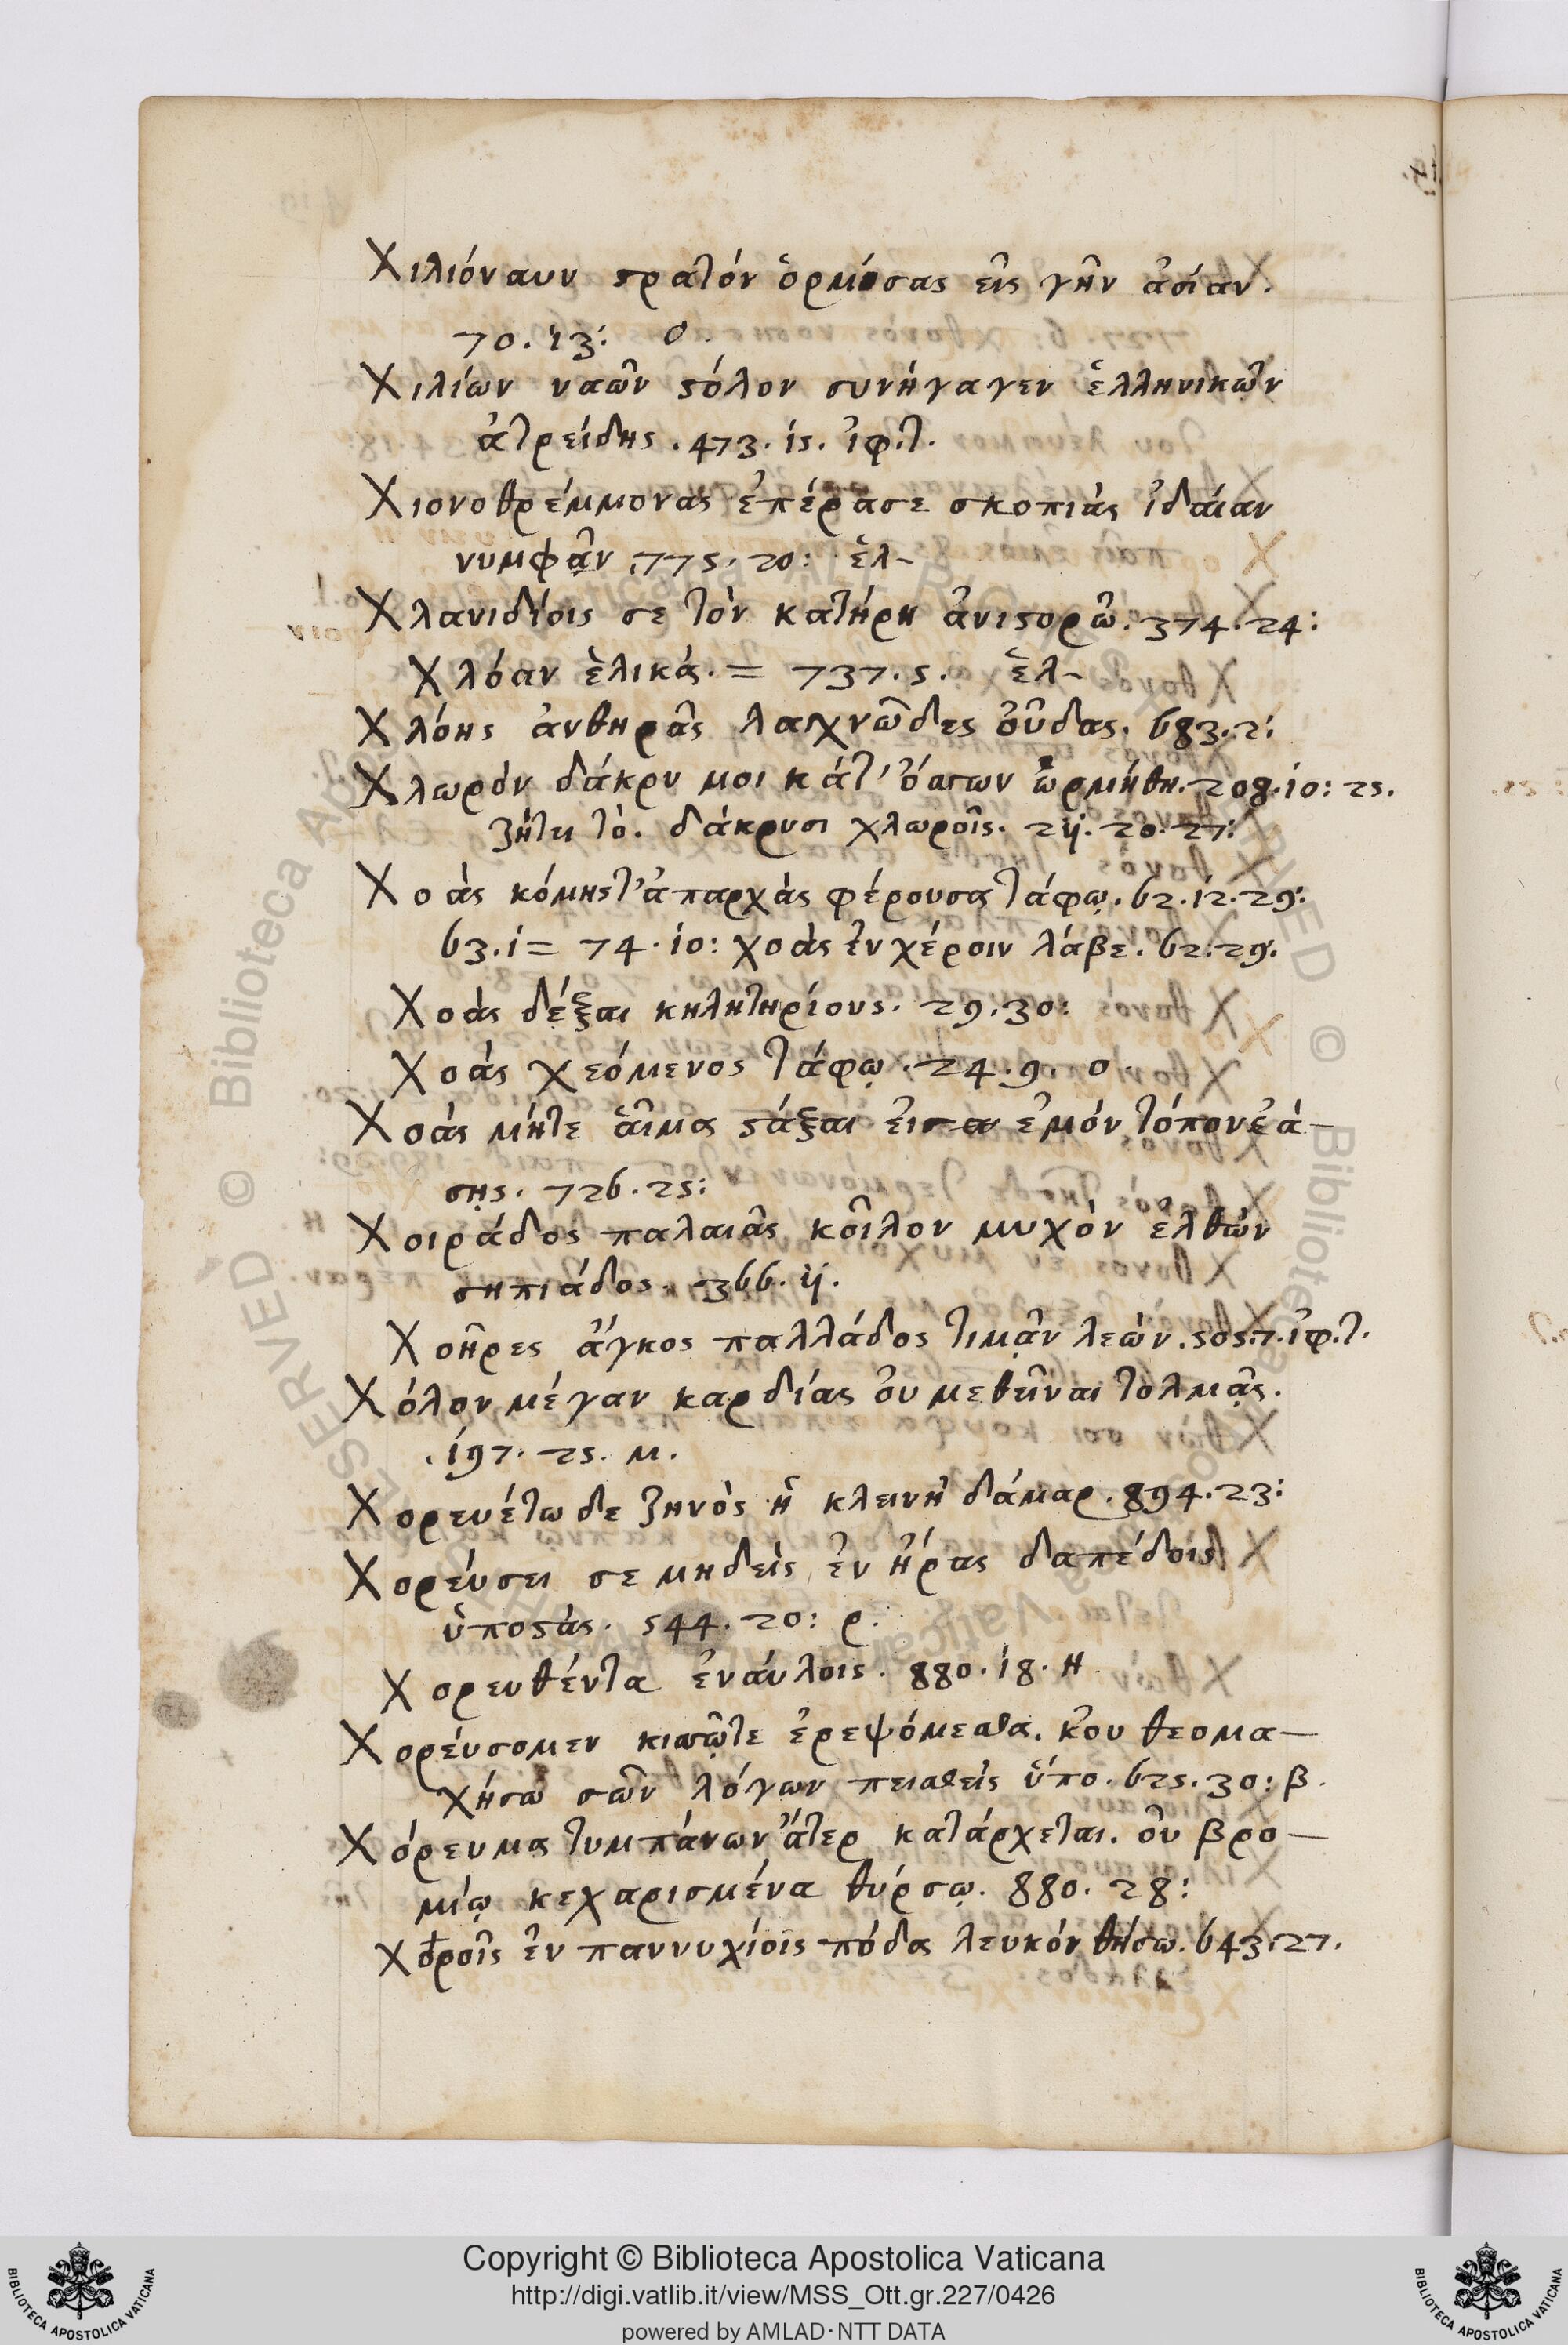 Χιλιόναυν στρατόν ὁρμήσας εἰς γῆν ἀσίαν.
70. 13: ο.
Χιλίων ναῶν στόλον συνήγαγεν ἑλληνικῶν
ἀτρείδης. 473. 15. ἰφ. τ.
Χιονοθρέμμονας ἐπέρασε σκοπιάς ἰδαίαν
νυμφᾶν. 775. 20: ἑλ-
Χλανιδίοις σε τὸν κατήρη ἀνιστορῶ. 374. 24:
Χλόαν ἑλικά. = 737. 5. ἑλ-
Χλόης ἀνθηρᾶς λαχνῶδες οὖδας. 683. 2:
Χλωρόν δάκρυ μοι κάτ' ὄσσων ὡρμήθη. 208. 10: 25.
ζήτει τὸ. δάκρυσι χλωροῖς. 211. 20. 27:
Χοὰς κόμης τ' ἀπαρχὰς φέρουσα τάφῳ. 62. 12. 29:
63. 1 = 74. 10: χοὰς ἐν χέροιν λάβε. 62: 29.
Χοὰς δέξαι κηλητηρίους. 29. 30:
Χοάς χεόμενος τάφῳ. 24. 9. ο.
Χοάς μήτε αἷμα στάξαι εἰς εμόν τόπον ἐά-
σῃς. 726. 25:
Χοιράδος παλαιᾶς κοῖλον μυχὸν ελθὼν
σηπιάδος. 366. 11.
Χοῆρες ἄγκος παλλάδος τιμᾷν λεών. 505. 7. ἰφ. τ.
Χόλον μέγαν καρδίας οὐ μεθεῖναι τολμᾷς.
197. 25. μ.
Χορευέτω δε ζηνὸς ἡ κλεινὴ δάμαρ. 894. 23:
Χορεύσει σε μηδεὶς ἐν ἡρας δαπέδοις
ὑποστάς. 544. 20: ρ.
Χορευθέντα ἐναύλοις. 880. 18. Η
Χορεύσομεν κισσῷτε ἐρεψόμεσθα. κοὐ θεομα-
χήσω σῶν λόγων πεισθείς ὕπο. 625. 30: β.
Χόρευμα τυμπάνων ἄτερ κατάρχεται. οὐ βρο-
μίῳ κεχαρισμένα θύρσῳ. 880. 28:
Χοροῖς ἐν παννυχίοις πόδα λευκόν θήσω. 643. 27.
Copyright © Biblioteca Apostolica Vaticana
http://digi.vatlib.it/view/MSS_Ott.gr.227/0426
powered by AMLAD·NTT DATA